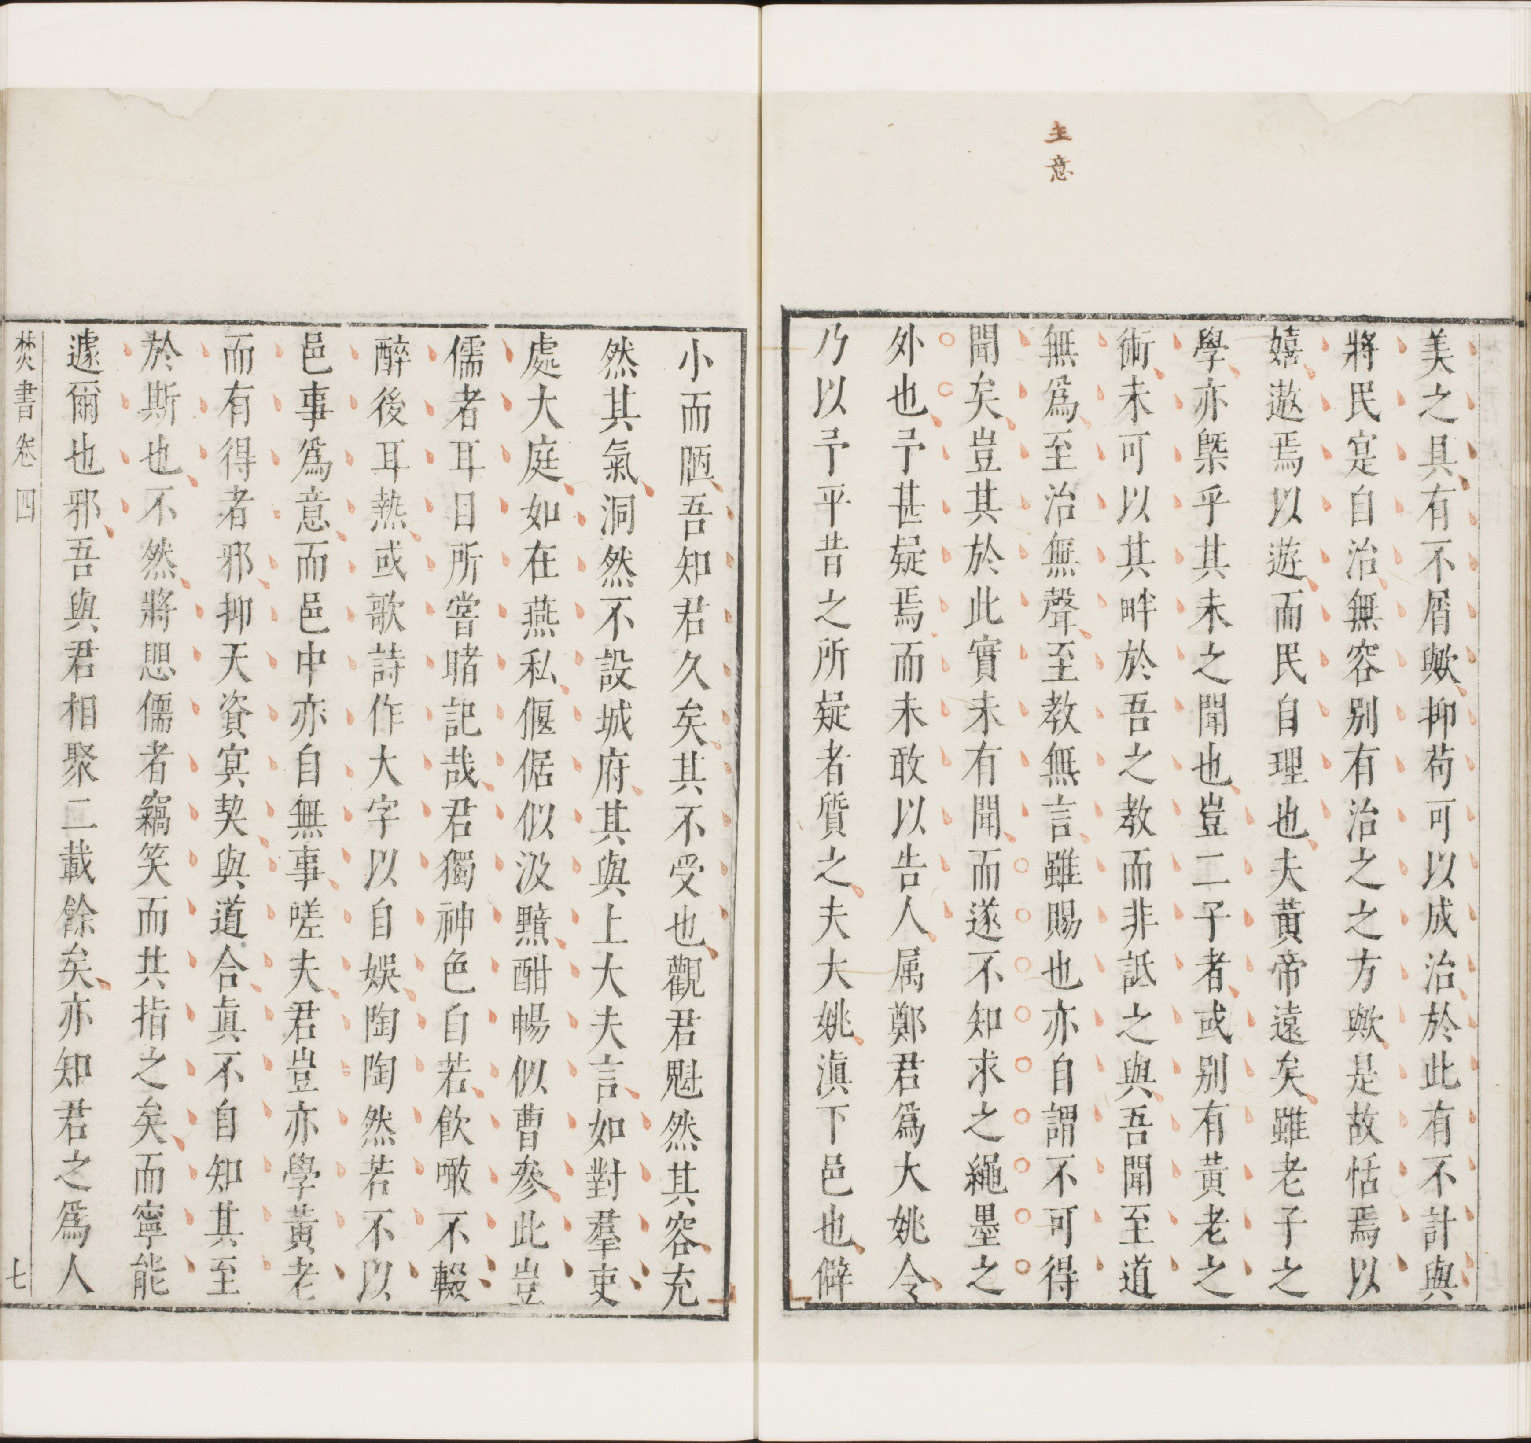 主意
美之具有不屑歟抑苟可以成治於此有不計與
將民寔自治無容别有治之之方歟是故恬焉以
嬉遨焉以遊而民自理也夫黄帝遠矣雖老子之
學亦槩乎其未之聞也豈二子者或别有黄老之
術未可以其畔於吾之教而非詆之與吾聞至道
無爲至治無聲至教無言雖賜也亦自謂不可得
聞矣豈其於此實未有聞而遂不知求之繩墨之
外也予甚疑焉而未敢以告人属鄭君爲大姚令
乃以予平昔之所疑者質之夫大姚滇下邑也僻
小而陋吾知君久矣其不受也觀君魁然其容充
然其氣洞然不設城府其與上大夫言如對羣吏
處大庭如在燕私偃倨似汲黯酣暢似曹參此豈
儒者耳目所嘗睹記哉君獨神色自若飲噉不輟
醉後耳熱或歌詩作大字以自娛陶陶然若不以
邑事爲意而邑中亦自無事嗟夫君豈亦學黄老
而有得者邪抑天資冥契與道合真不自知其至
於斯也不然將恖儒者竊笑而共指之矣而寧能
遽爾也邪吾與君相聚二載餘矣亦知君之爲人
焚書卷四
七